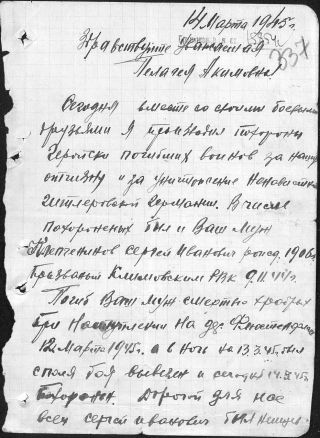 14 Марта 1945 г.
337
Здравствуйте Уважаемая
Пелагея Акимовна
Сегодня вместе со своими боевыми
друзьями я производил похороны
Геройски погибших воинов за нашу
отчизну и за уничтожение ненавистной
гитлеровской германии. В числе
похороненых был и Ваш Муж
Сергей Иванович рожд. 1906
Призваный Климовским РВК 9.11.44 г.
Погиб Ваш муж смертью храбрых
При Наступлении На дер.
12 Марта 1945. а в ночь на 13.3.45. был
с поля боя вывезен и сегодня 14.3.45
Похоронен. Дорогой для нас
всех сергей иванович был